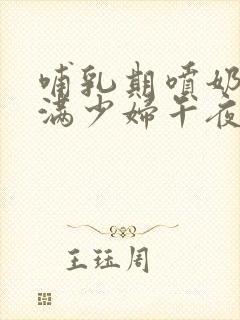 哺乳期喷奶
满少妇午夜
王珏周